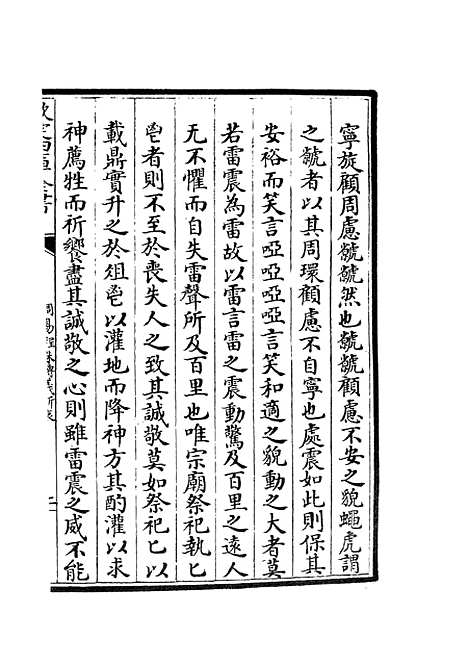 寧旋顧周慮虩虩然也虩虩顧慮不安之貌蠅虎謂
之虩者以其周環顧慮不自寧也處震如此則保其
安裕而笑言啞啞啞啞言笑和適之貌動之大者莫
若雷震為雷故以雷言雷之震動驚及百里之遠人
无不懼而自失雷聲所及百里也唯宗廟祭祀執匕
鬯者則不至於喪失人之致其誠敬莫如祭祀匕以
載鼎實升之於俎鬯以灌地而降神方其酌灌以求
神薦牲而祈饗盡其誠敬之心則雖雷震之威不能